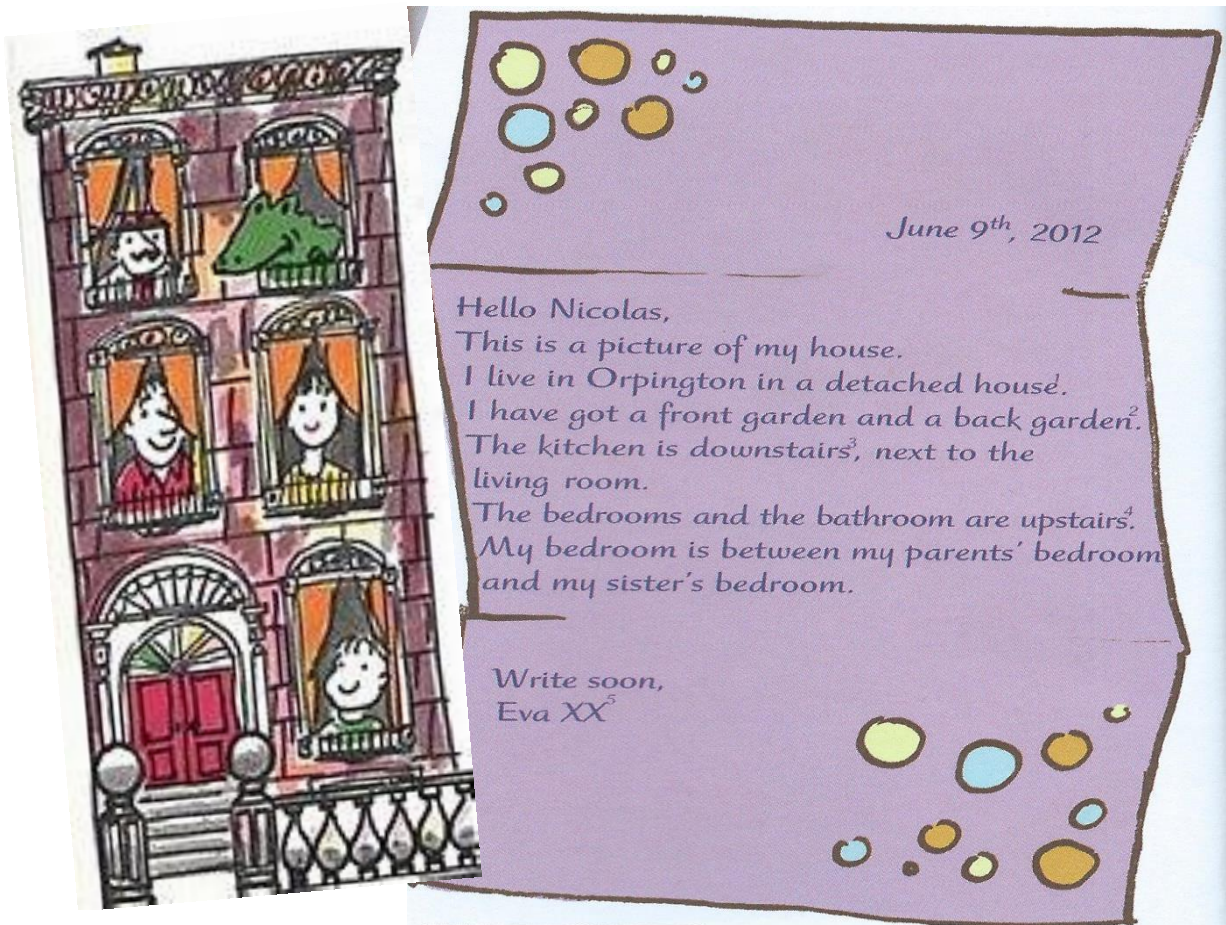 June 9th, 2012
Hello Nicolas,
This is a picture of my house.
I live in Orpington in a detached house1.
I have got a front garden and a back garden2.
The kitchen is downstairs3, next to the
living room.
The bedrooms and the bathroom are upstairs4.
My bedroom is between my parents' bedroom
and my sister's bedroom.
Write soon,
Eva XX5